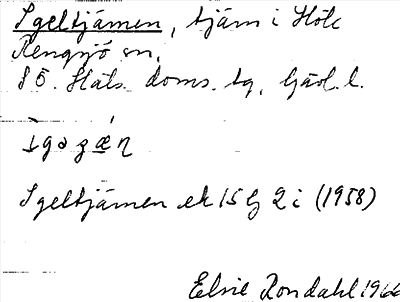 Igeltjärnen, tjärn i Höle
Rengsjö sn,
S Ö. Häls. doms. tg, Gävl. l.
Igeltjärnen ek 15 G 2 i (1958)
Elsie Rondahl 1966